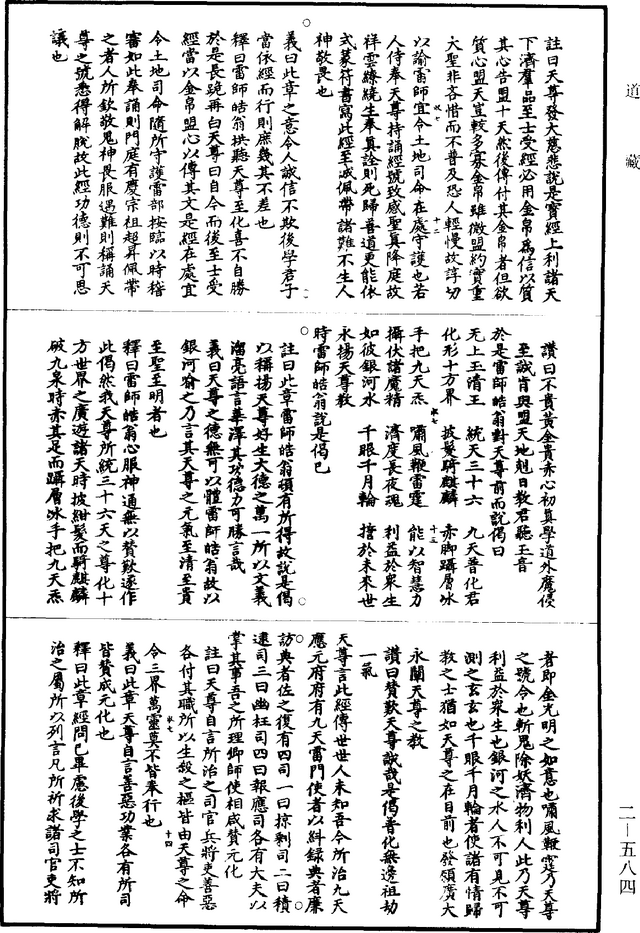 道藏
註曰天尊發大慈悲說是寶經上利諸天
下濟羣品至士受經必用金帛爲信以質
其心告盟十天然後傳付其金帛者但欲
質心盟天豈較多寡金帛雖微盟約實重
大聖非吝惜而不普及恐人輕慢故諄切
以諭雷師宜令土地司命在處守護也若
人侍奉天尊持誦經號致感聖真降庭故
祥雲繚繞生奉真詮則死歸善道更能依
式篆符書寫此經至誠佩帶諸難不生人
神敬畏也
義曰此章之意令人誠信不欺後學君子
當依經而行則庶幾其不差也
釋曰雷師皓翁拱聽天尊至化喜不自勝
於是長跪再白天尊曰自今而後至士受
經當以金帛盟心以傳其文是經在處宜
令土地司命隨所守護雷部按臨以時稽
審如此奉誦則門庭有慶宗祖超昇佩帶
之者人所欽敬鬼神畏服遇難則稱誦天
尊之號悉得解脫故此經功德則不可思
議也
讚曰不貴黃金貴赤心初真學道外魔侵
至誠肯與盟天地剋日教君聽玉音
於是雷師皓翁對天尊前而說偈曰
无上玉清王　統天三十六　九天普化君
化形十方界　披髮騎麒麟　赤脚躡層冰
手把九天炁　嘯風鞭雷霆　能以智慧力
攝伏諸魔精　濟度長夜魂　利益於衆生
如彼銀河水　千眼千月輪　誓於未來世
永揚天尊教
時雷師皓翁說是偈已
註曰此章雷師皓翁碩有所得故說是偈
以稱揚天尊好生大德之萬一所以文義
溜亮語言華澤其功德力可勝言哉
義曰天尊之德無可以體雷師皓翁故以
銀河喻之乃言其天尊之元氣至清至貴
至聖至明者也
釋曰雷師皓翁心服神通無以贊歎遂作
此偈然我天尊所統三十六天之尊化十
方世界之廣遊諸天時披紺髮而騎麒麟
破九泉時赤其足而躡層冰手把九天炁
者即金光明之如意也嘯風鞭霆乃天尊
之號令也斬鬼除妖濟物利人此乃天尊
利益於衆生也銀河之水人不可見不可
測之玄玄也千眼千月輪者使諸有情歸
教之士猶如天尊之在目前也發願廣大
永闡天尊之教
讚曰贊歎天尊誠哉是偈普化無邊祖劫
一氣
天尊言此經傳世世人未知吾今所治九天
應元府府有九天雷門使者以糾錄典者廉
訪典者佐之復有四司一曰掠剩司二曰積
逮司三曰幽枉司四曰報應司各有大夫以
掌其事吾之所理卿師使相咸贊元化
註曰天尊自言所治之司官兵將吏善惡
各付其職所以生殺之樞皆由天尊之命
令三界萬靈莫不皆奉行也
義曰此章天尊自言善惡功業各有所司
皆贊成元化也
釋曰此章經問已畢慮後學之士不知所
治之屬所以列言凡所祈求諸司官吏將
二—五八四